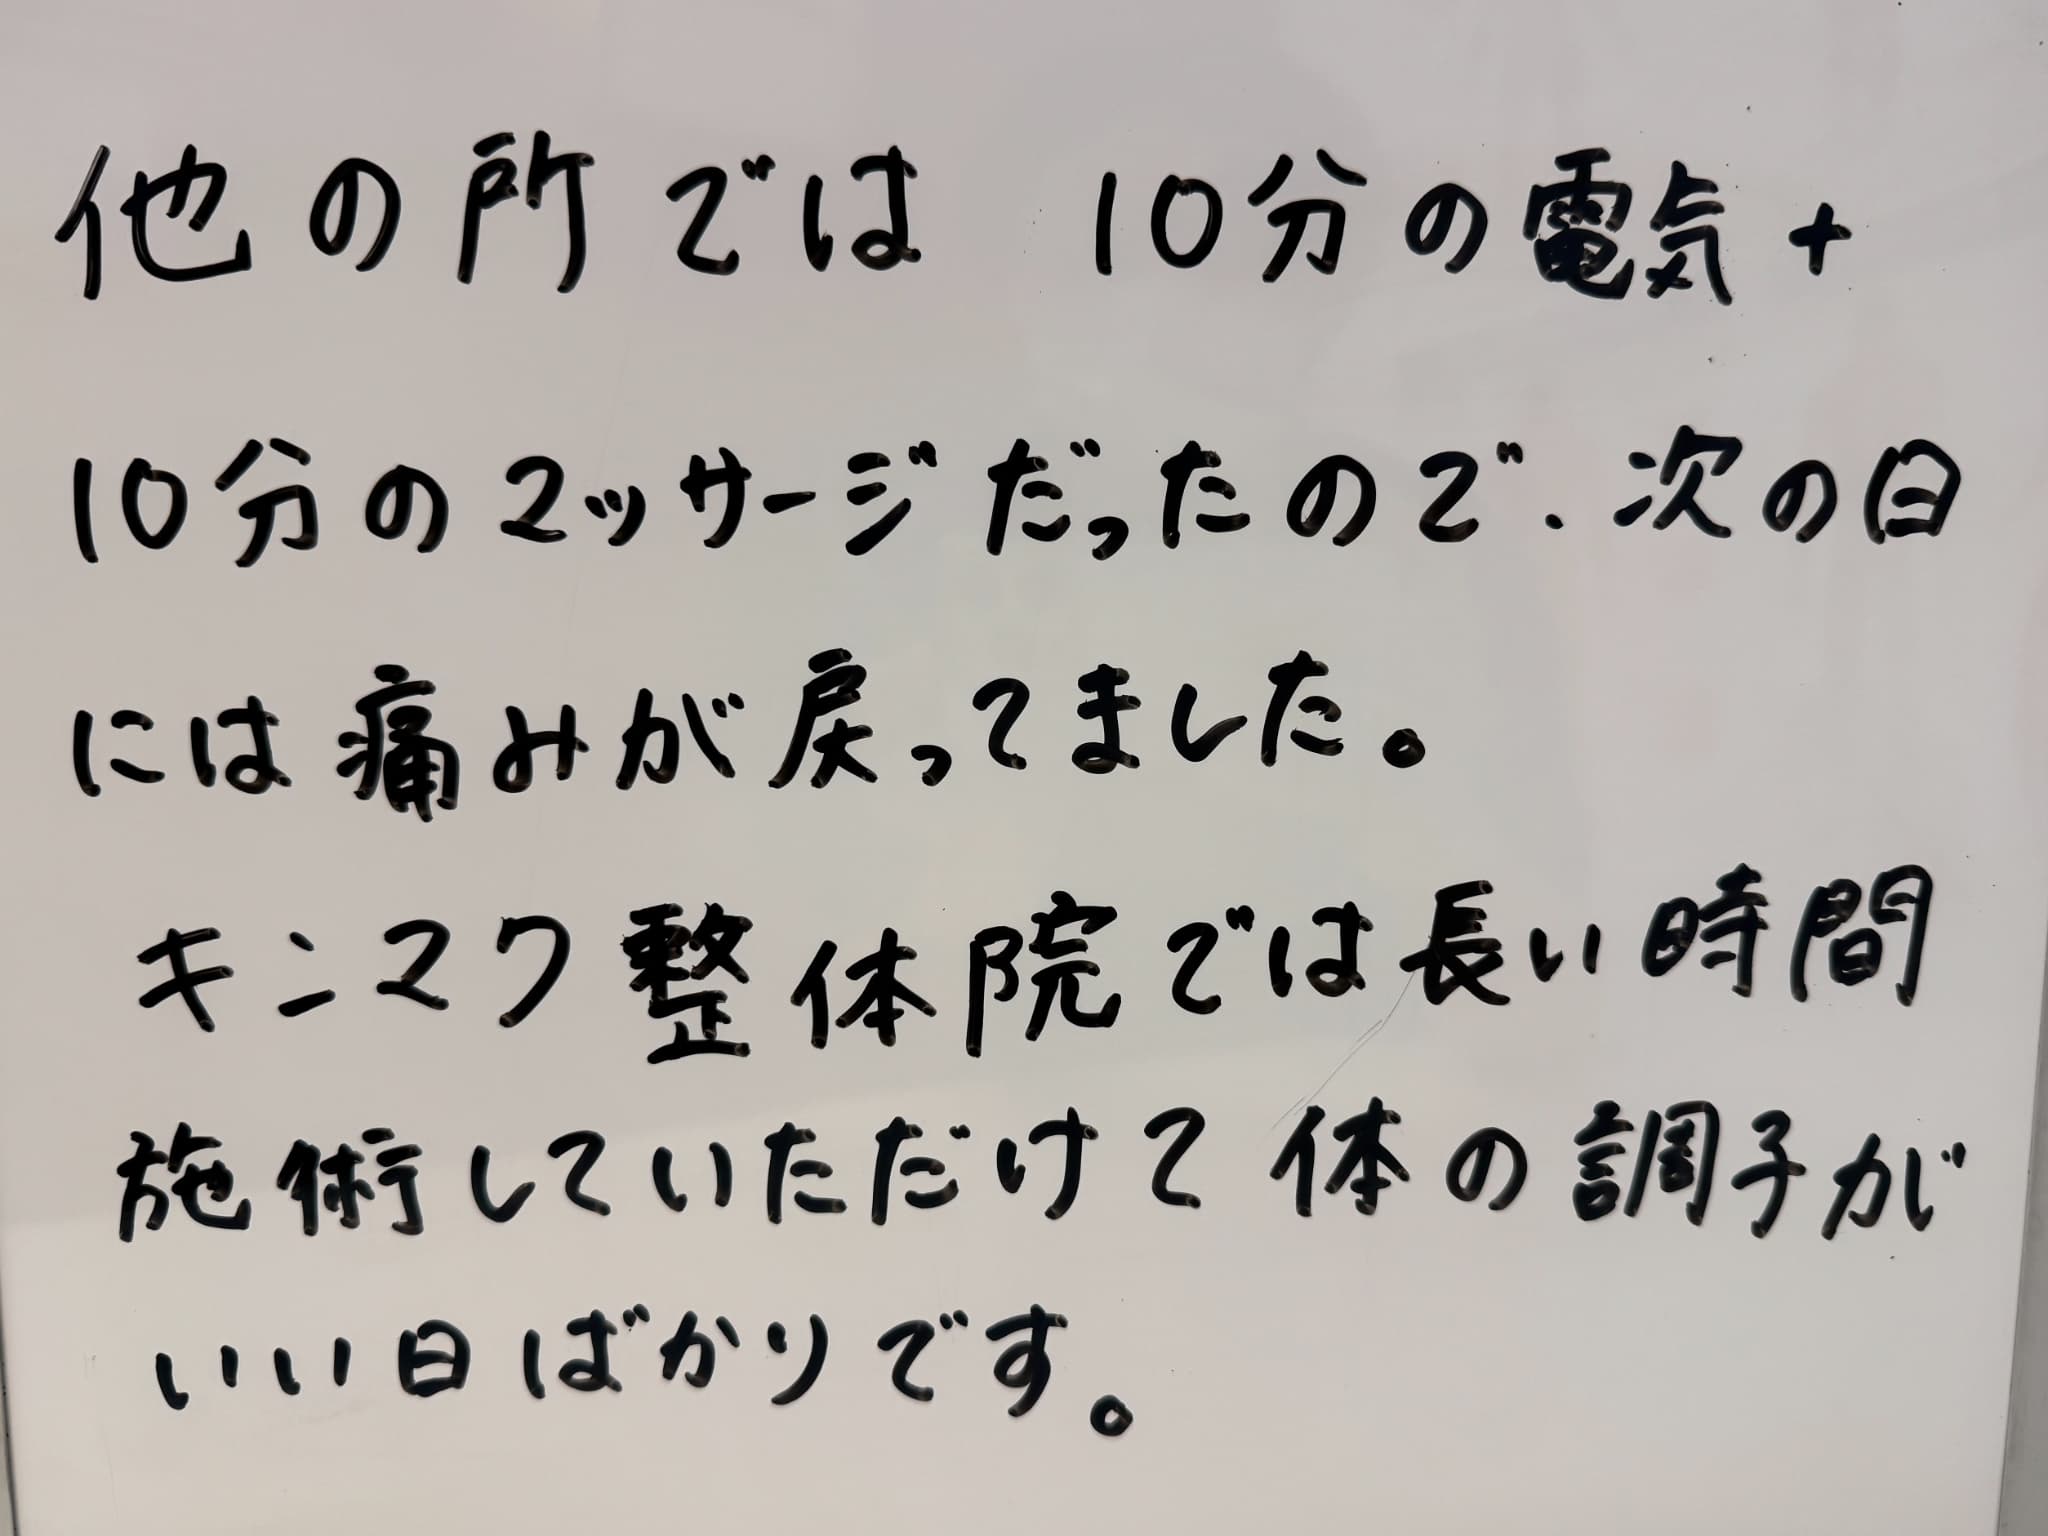 他の所では 10分の電気+
10分のマッサージだったので、次の日
には痛みが戻ってました。
キンマク整体院では長い時間
施術していただけて体の調子が
いい日ばかりです。